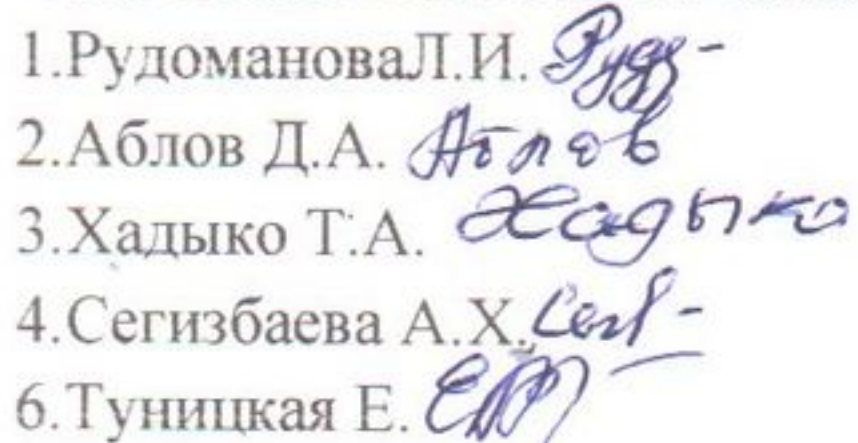 1.РудомановаЛ.И.
2.Аблов Д.А. Аблов
3.Хадыко Т.А. Хадыко
4.Сегизбаева А.Х.
6.Туницкая Е.